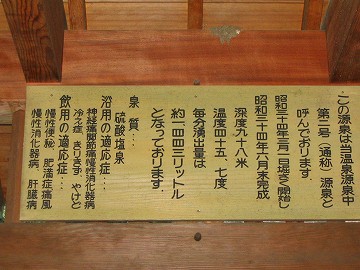 この源泉は当温泉源泉中
第二号(通称)源泉と
呼んでおります。
昭和三十四年三月一日堀さく開始し
昭和三十四年六月末完成
深度九十八米
温度四十五、七度
毎分湧出量は
約一四四三リットル
となっております。
泉質…
硫酸塩泉
浴用の適応症…
神経痛関節痛慢性消化器病
冷え症、きりきず、やけど
飲用の適応症…
慢性便秘、肥満症痛風
慢性消化器病、肝臓病